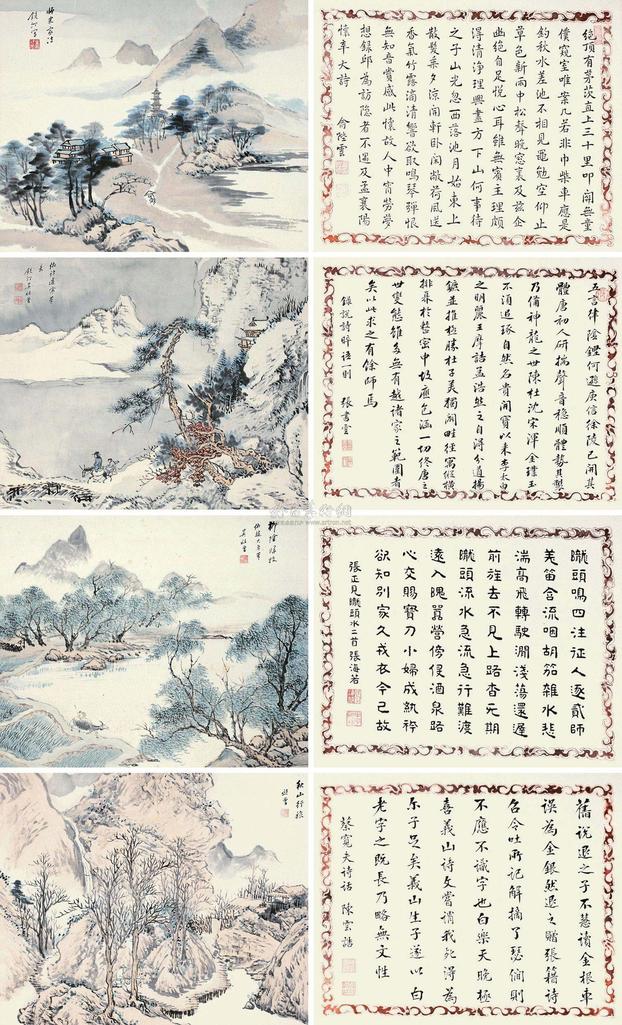 鏡汀寫
絕頂有茅茨直上三十里叩關無童
僕窺室唯案几若非巾柴車應是
釣秋水差池不相見黽勉空仰止
草色新雨中松聲晚窗裏及茲企
幽絕自足悅心耳雖無賓主理頗
得清淨理興盡方下山何事待
之子山光忽西落池月始東上
散髮乘夕涼開軒臥閒敞荷風送
香氣竹露滴清響欲取鳴琴彈恨
無知音賞感此懷故人中宵勞夢
想錄邱為訪隱者不遇及孟襄陽
懷辛大詩 俞陛雲
仿許道寧筆
意
五言律陰鏗何遜庚信徐陵已開其
體唐初人研揣聲音穩順體勢其製
乃備神龍之世陳杜沈宋渾金璞玉
不須追琢自然名貴開寶以來李太白
之明麗王摩詰孟浩然之自得分道揚
鑣並推極勝杜子美獨闢畦徑寓縱橫
排奡於整密中故應包涵一切終唐之
世變態雖多無有越諸家之範圍者
矣以此求之有餘師焉
錄說詩晬語一則 張書雲
柳陰放牧
隴頭鳴四注征人逐貳師
羌笛含流咽胡笳雜水悲
湍高飛轉駛澗淺蕩還遲
前旌去不見上路杳无期
隴頭流水急流急行難渡
遠入隗囂營傍侵酒泉路
心交賜寶刀小婦成紈袴
欲知別家久戎衣今已故
張正見隴頭水二首 張海若
秋山行旅
舊說退之子不慧讀金根車
誤為金銀然退之贈張籍詩
召令吐所記解摘了瑟僩則
不應不識字也白樂天晚極
喜義山詩文嘗謂我死得為
尔子足矣義山生子遂以白
老字之既長乃略無文性
蔡寬夫詩話 陳雲誥